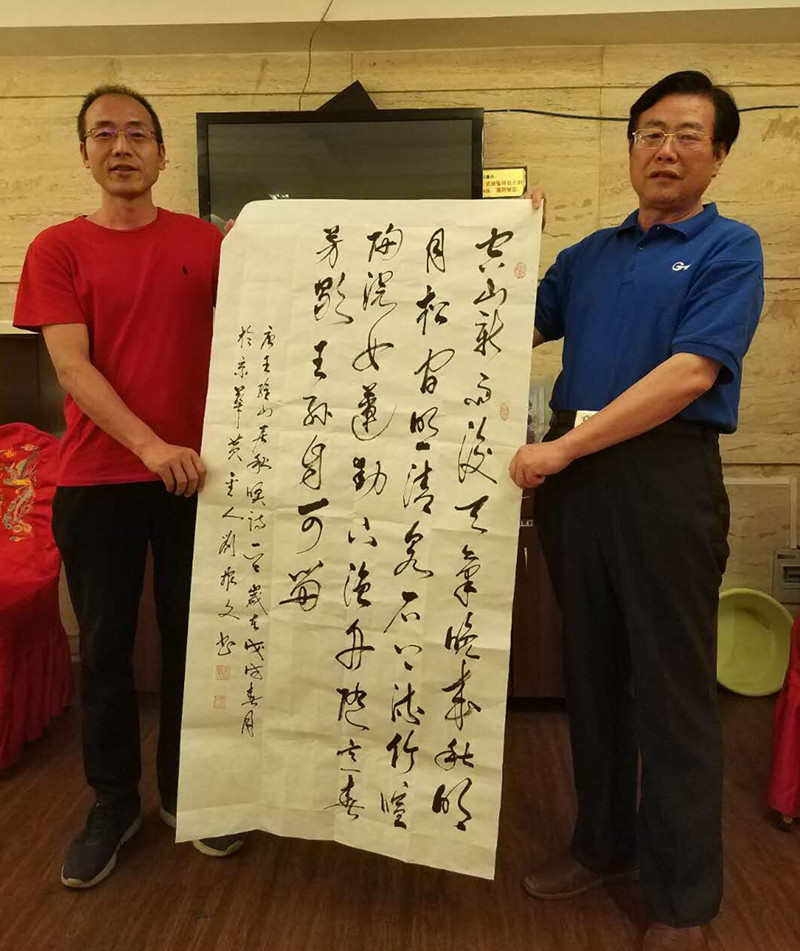 空山新雨後天氣晚來秋明
月松間照清泉石上流竹喧
歸浣女蓮動下漁舟隨意春
芳歇王孫自可留
唐王維山居秋暝詩一首歲在戊戌春月
於京華人劉振文书